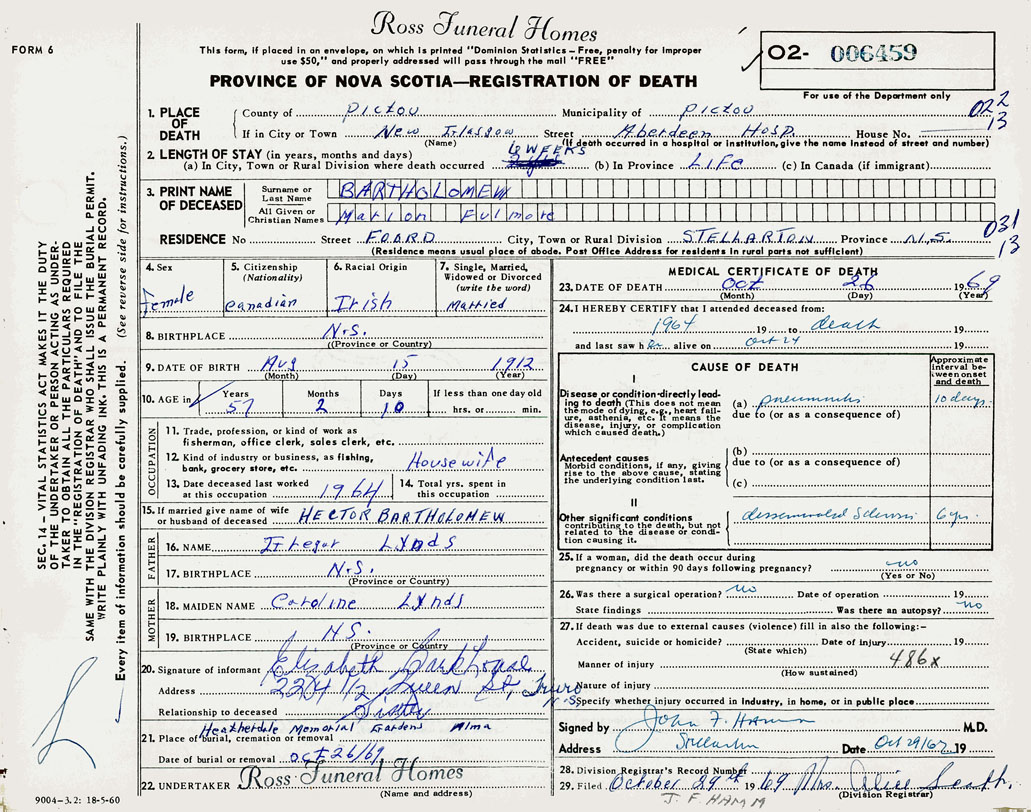 Ross Funeral Homes
FORM 6
This form, if placed in an envelope, on which is printed "Dominion Statistics – Free, penalty for improper
use $50," and properly addressed will pass through the mail "FREE"
PROVINCE OF NOVA SCOTIA—REGISTRATION OF DEATH
02- 006459
For use of the Department only
022
13
1. PLACE OF DEATH
County of Pictou Municipality of Pictou
If in City or Town New Glasgow Street Aberdeen Hosp. House No.
(Name) (If death occurred in a hospital or institution, give the name instead of street and number)
2. LENGTH OF STAY (in years, months and days) 6 WEEKS
(a) In City, Town or Rural Division where death occurred (b) In Province LIFE (c) In Canada (if immigrant)
3. PRINT NAME OF DECEASED
Surname or Last Name BARTHOLOMEW
All Given or Christian Names Marion Fulmore
031
13
RESIDENCE No Street FOORD City, Town or Rural Division STELLARTON Province N.S.
(Residence means usual place of abode. Post Office Address for residents in rural parts not sufficient)
4. Sex Female
5. Citizenship (Nationality) Canadian
6. Racial Origin Irish
7. Single, Married, Widowed or Divorced (write the word) Married
8. BIRTHPLACE N.S.
(Province or Country)
9. DATE OF BIRTH Aug 15 1912
(Month) (Day) (Year)
10. AGE in Years 57 Months 2 Days 10 If less than one day old hrs. or min.
OCCUPATION
11. Trade, profession, or kind of work as
fisherman, office clerk, sales clerk, etc.
12. Kind of industry or business, as fishing,
bank, grocery store, etc. Housewife
13. Date deceased last worked at this occupation 1964
14. Total yrs. spent in this occupation
15. If married give name of wife or husband of deceased HECTOR BARTHOLOMEW
FATHER
16. NAME Lynds
17. BIRTHPLACE N.S.
(Province or Country)
MOTHER
18. MAIDEN NAME Caroline Lynds
19. BIRTHPLACE N.S.
(Province or Country)
20. Signature of informant Elizabeth
Address 2204 1/2 Queen St, Truro N.S.
Relationship to deceased Sister
21. Place of burial, cremation or removal Heatherdale Memorial Gardens Alma
Date of burial or removal Oct 26/69
22. UNDERTAKER Ross Funeral Homes
(Name and address)
9004-3.2: 18-5-60
MEDICAL CERTIFICATE OF DEATH
23. DATE OF DEATH Oct 26 1969
(Month) (Day) (Year)
24. I HEREBY CERTIFY that I attended deceased from:
1964 19 to death 19
and last saw her alive on Oct 24 19
CAUSE OF DEATH
Approximate interval between onset and death
I
Disease or condition directly leading to death (This does not mean
the mode of dying, e.g., heart failure, asthenia, etc. It means the
disease, injury, or complication
which caused death.)
(a) pneumonitis 10 days
due to (or as a consequence of)
Antecedent causes
Morbid conditions, if any, giving
rise to the above cause, stating
the underlying condition last.
(b)
due to (or as a consequence of)
(c)
II
Other significant conditions
contributing to the death, but not
related to the disease or condition causing it.
disseminated Sclerosis 6 yrs.
25. If a woman, did the death occur during
pregnancy or within 90 days following pregnancy? no
(Yes or No)
26. Was there a surgical operation? no Date of operation 19
State findings Was there an autopsy? no
27. If death was due to external causes (violence) fill in also the following:–
Accident, suicide or homicide? Date of injury 19
(State which)
Manner of injury 486x
(How sustained)
Nature of injury
Specify whether injury occurred in industry, in home, or in public place
Signed by John F. Hamm M.D.
Address Stellarton Date Oct 29/69 19
28. Division Registrar's Record Number
29. Filed October 29th 1969 Mrs. Alice
(Division Registrar)
J. F. HAMM
SEC. 14 – VITAL STATISTICS ACT MAKES IT THE DUTY
OF THE UNDERTAKER OR PERSON ACTING AS UNDERTAKER TO OBTAIN ALL THE PARTICULARS REQUIRED
IN THE "REGISTRATION OF DEATH" AND TO FILE THE
SAME WITH THE DIVISION REGISTRAR WHO SHALL ISSUE THE BURIAL PERMIT.
WRITE PLAINLY WITH UNFADING INK. THIS IS A PERMANENT RECORD.
Every item of information should be carefully supplied. (See reverse side for instructions.)